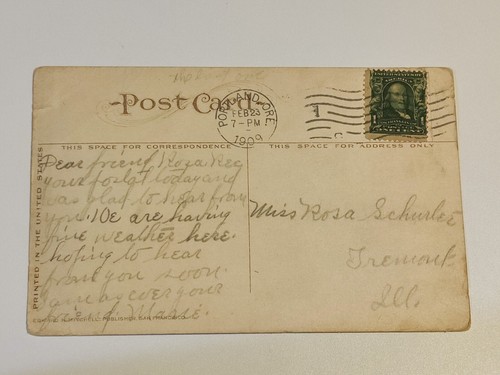 Post Card
PORTLAND, ORE.
FEB 23
7-PM
1909
1
ONE CENT
THIS SPACE FOR CORRESPONDENCE
THIS SPACE FOR ADDRESS ONLY
PRINTED IN THE UNITED STATES
Dear friend Rosa Rec
your postal today and
was glad to hear from
you. We are having
fine weather here.
hoping to hear
from you soon.
I am as ever your
friend
PUBLISHER, SAN FRANCISCO
Miss Rosa
Tremont
Ill.